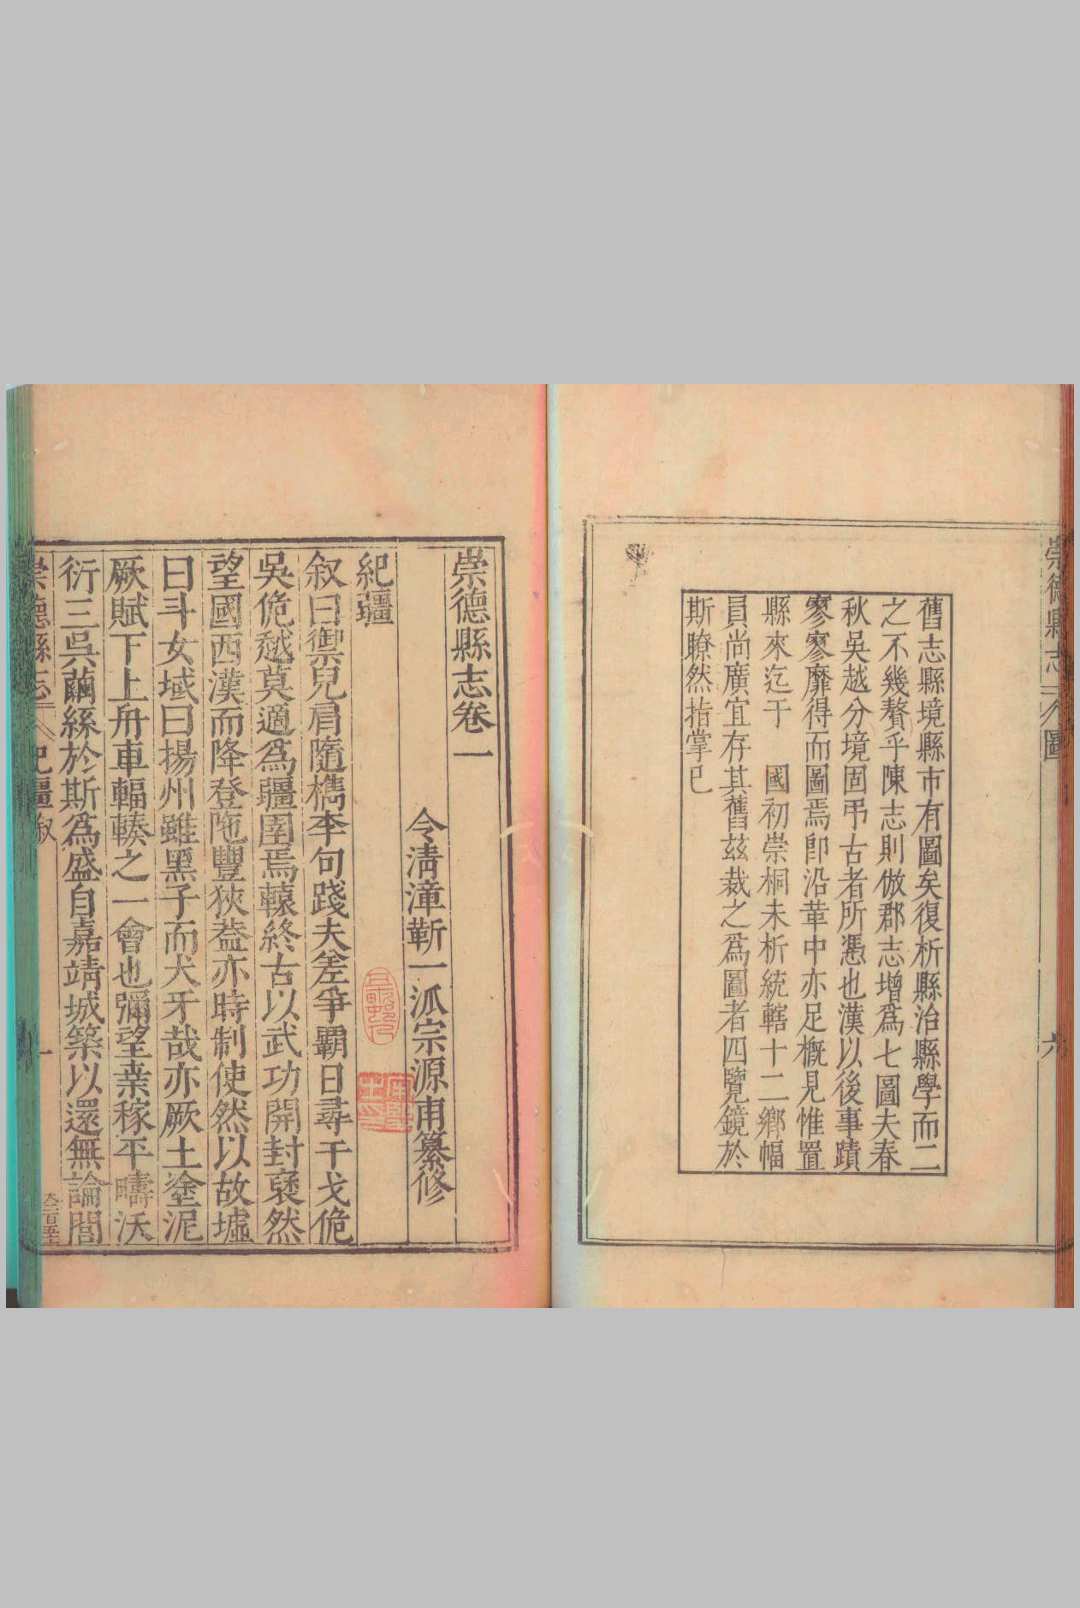 崇德縣志 圖 六
舊志縣境縣市有圖矣復析縣治縣學而二
之不幾贅乎陳志則倣郡志增爲七圖夫春
秋吳越分境固弔古者所憑也漢以後事蹟
寥寥靡得而圖焉卽沿革中亦足槪見惟置
縣來迄于　國初崇桐未析統轄十二鄉幅
員尚廣宜存其舊茲裁之爲圖者四覽鏡於
斯瞭然指掌已
崇德縣志卷一
令淸漳靳一派宗源甫纂修
紀疆
叙曰禦兒肩隨檇李句踐夫差爭霸日尋干戈佹
吳佹越莫適爲疆圉焉轅終古以武功開封襃然
望國西漢而降登陁豐狹葢亦時制使然以故墟
曰斗女域曰揚州雖黑子而犬牙哉亦厥土塗泥
厥賦下上舟車輻輳之一會也彌望桒稼平疇沃
衍三吳繭絲於斯爲盛自嘉靖城築以還無論閭
崇德縣志 紀疆叙 一